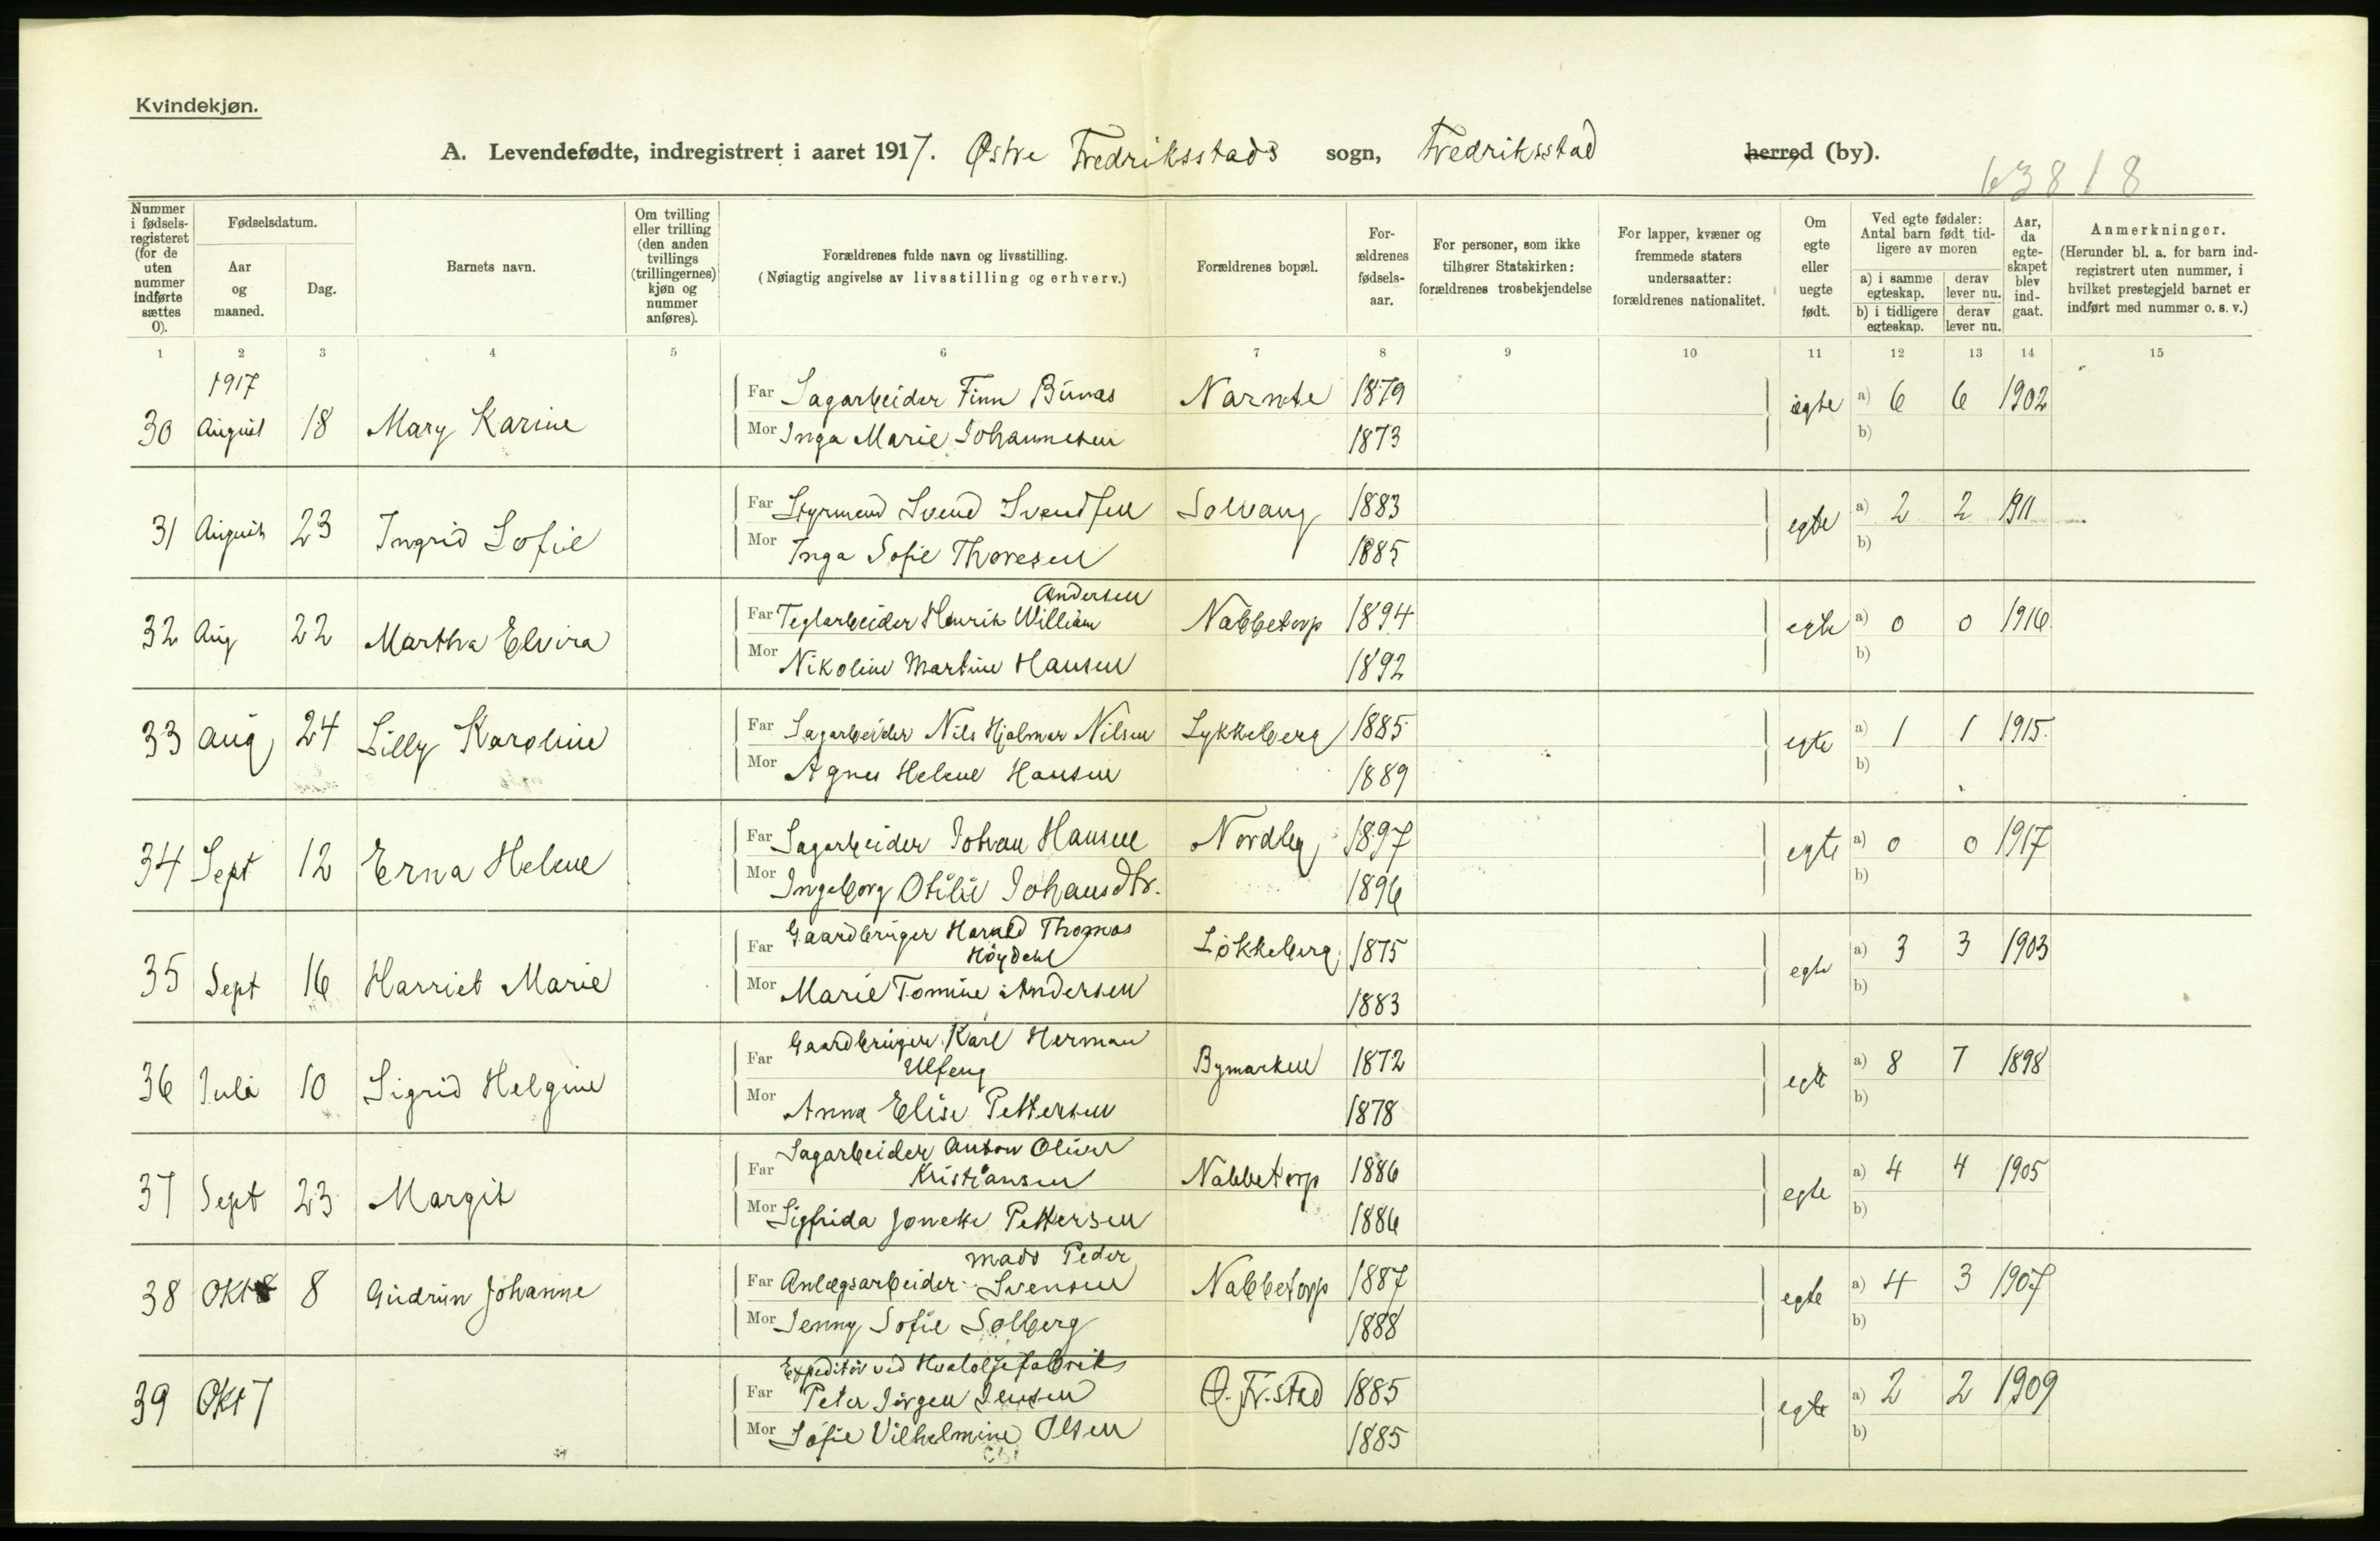 Kvindekjøn.
A. Levendefødte, indregistrert i aaret 1917. Østre Fredriksstads sogn, Fredriksstad herred (by).
63818
Nummer i fødsels-registeret (for de uten nummer indførte sættes 0).
Fødselsdatum.
Aar og maaned.
Dag.
Barnets navn.
Om tvilling eller trilling (den anden tvillings (trillingernes) kjøn og nummer anføres).
Forældrenes fulde navn og livsstilling.
(Nøiagtig angivelse av livsstilling og erhverv.)
Forældrenes bopæl.
For-ældrenes fødsels-aar.
For personer, som ikke tilhører Statskirken: forældrenes trosbekjendelse
For lapper, kvæner og fremmede staters undersaatter: forældrenes nationalitet.
Om egte eller uegte født.
Ved egte fødsler: Antal barn født tid-ligere av moren
a) i samme egteskap.
derav lever nu.
b) i tidligere egteskap.
derav lever nu.
Aar, da egte-skapet blev ind-gaat.
Anmerkninger.
(Herunder bl. a. for barn ind-registrert uten nummer, i hvilket prestegjeld barnet er indført med nummer o. s. v.)
1 2 3 4 5 6 7 8 9 10 11 12 13 14 15
1917
30 August 18 Mary Karine Far Sagarbeider Finn Bunas Narnte 1879 egte a) 6 6 1902
Mor Inga Marie Johannesen 1873 b)
31 August 23 Ingrid Sofie Far Styrmand Svend Svendsen Solvang 1883 egte a) 2 2 1911
Mor Inga Sofie Thoresen 1885 b)
Andersen
32 Aug 22 Martha Elvira Far Teglarbeider Henrik William Nabbetorp 1894 egte a) 0 0 1916
Mor Nikoline Martine Hansen 1892 b)
33 Aug 24 Lilly Karoline Far Sagarbeider Nils Hjalmar Nilsen Lykkeberg 1885 egte a) 1 1 1915.
Mor Agnes Helene Hansen 1889 b)
34 Sept 12 Erna Helene Far Sagarbeider Johan Hansen Nordby 1897 egte a) 0 0 1917
Mor Ingeborg Otilie Johansdtr. 1896 b)
Gaardbruger Harald Thomas
35 Sept 16 Harriet Marie Far Høydahl Løkkeberg 1875 egte a) 3 3 1903
Mor Marie Tomine Andersen 1883 b)
Gaardbruger Karl Herman
36 Juli 10 Sigrid Helgine Far Ulfeng Bymarken 1872 egte a) 8 7 1898
Mor Anna Elise Pettersen 1878 b)
Sagarbeider Anton Oliver
37 Sept 23 Margit Far Kristiansen Nabbetorp 1886 egte a) 4 4 1905
Mor Sigfrida Jonette Pettersen 1886 b)
Mads Peder
38 Okt 8 Gudrun Johanne Far Anlægsarbeider Svensen Nabbetorp 1887 egte a) 4 3 1907
Mor Jenny Sofie Solberg 1888 b)
Expeditør ved Hvaloljefabrik
39 Okt 7 Far Peter Jørgen Jensen Ø. Fr.stad 1885 egte a) 2 2 1909
Mor Sofie Vilhelmine Olsen 1885 b)